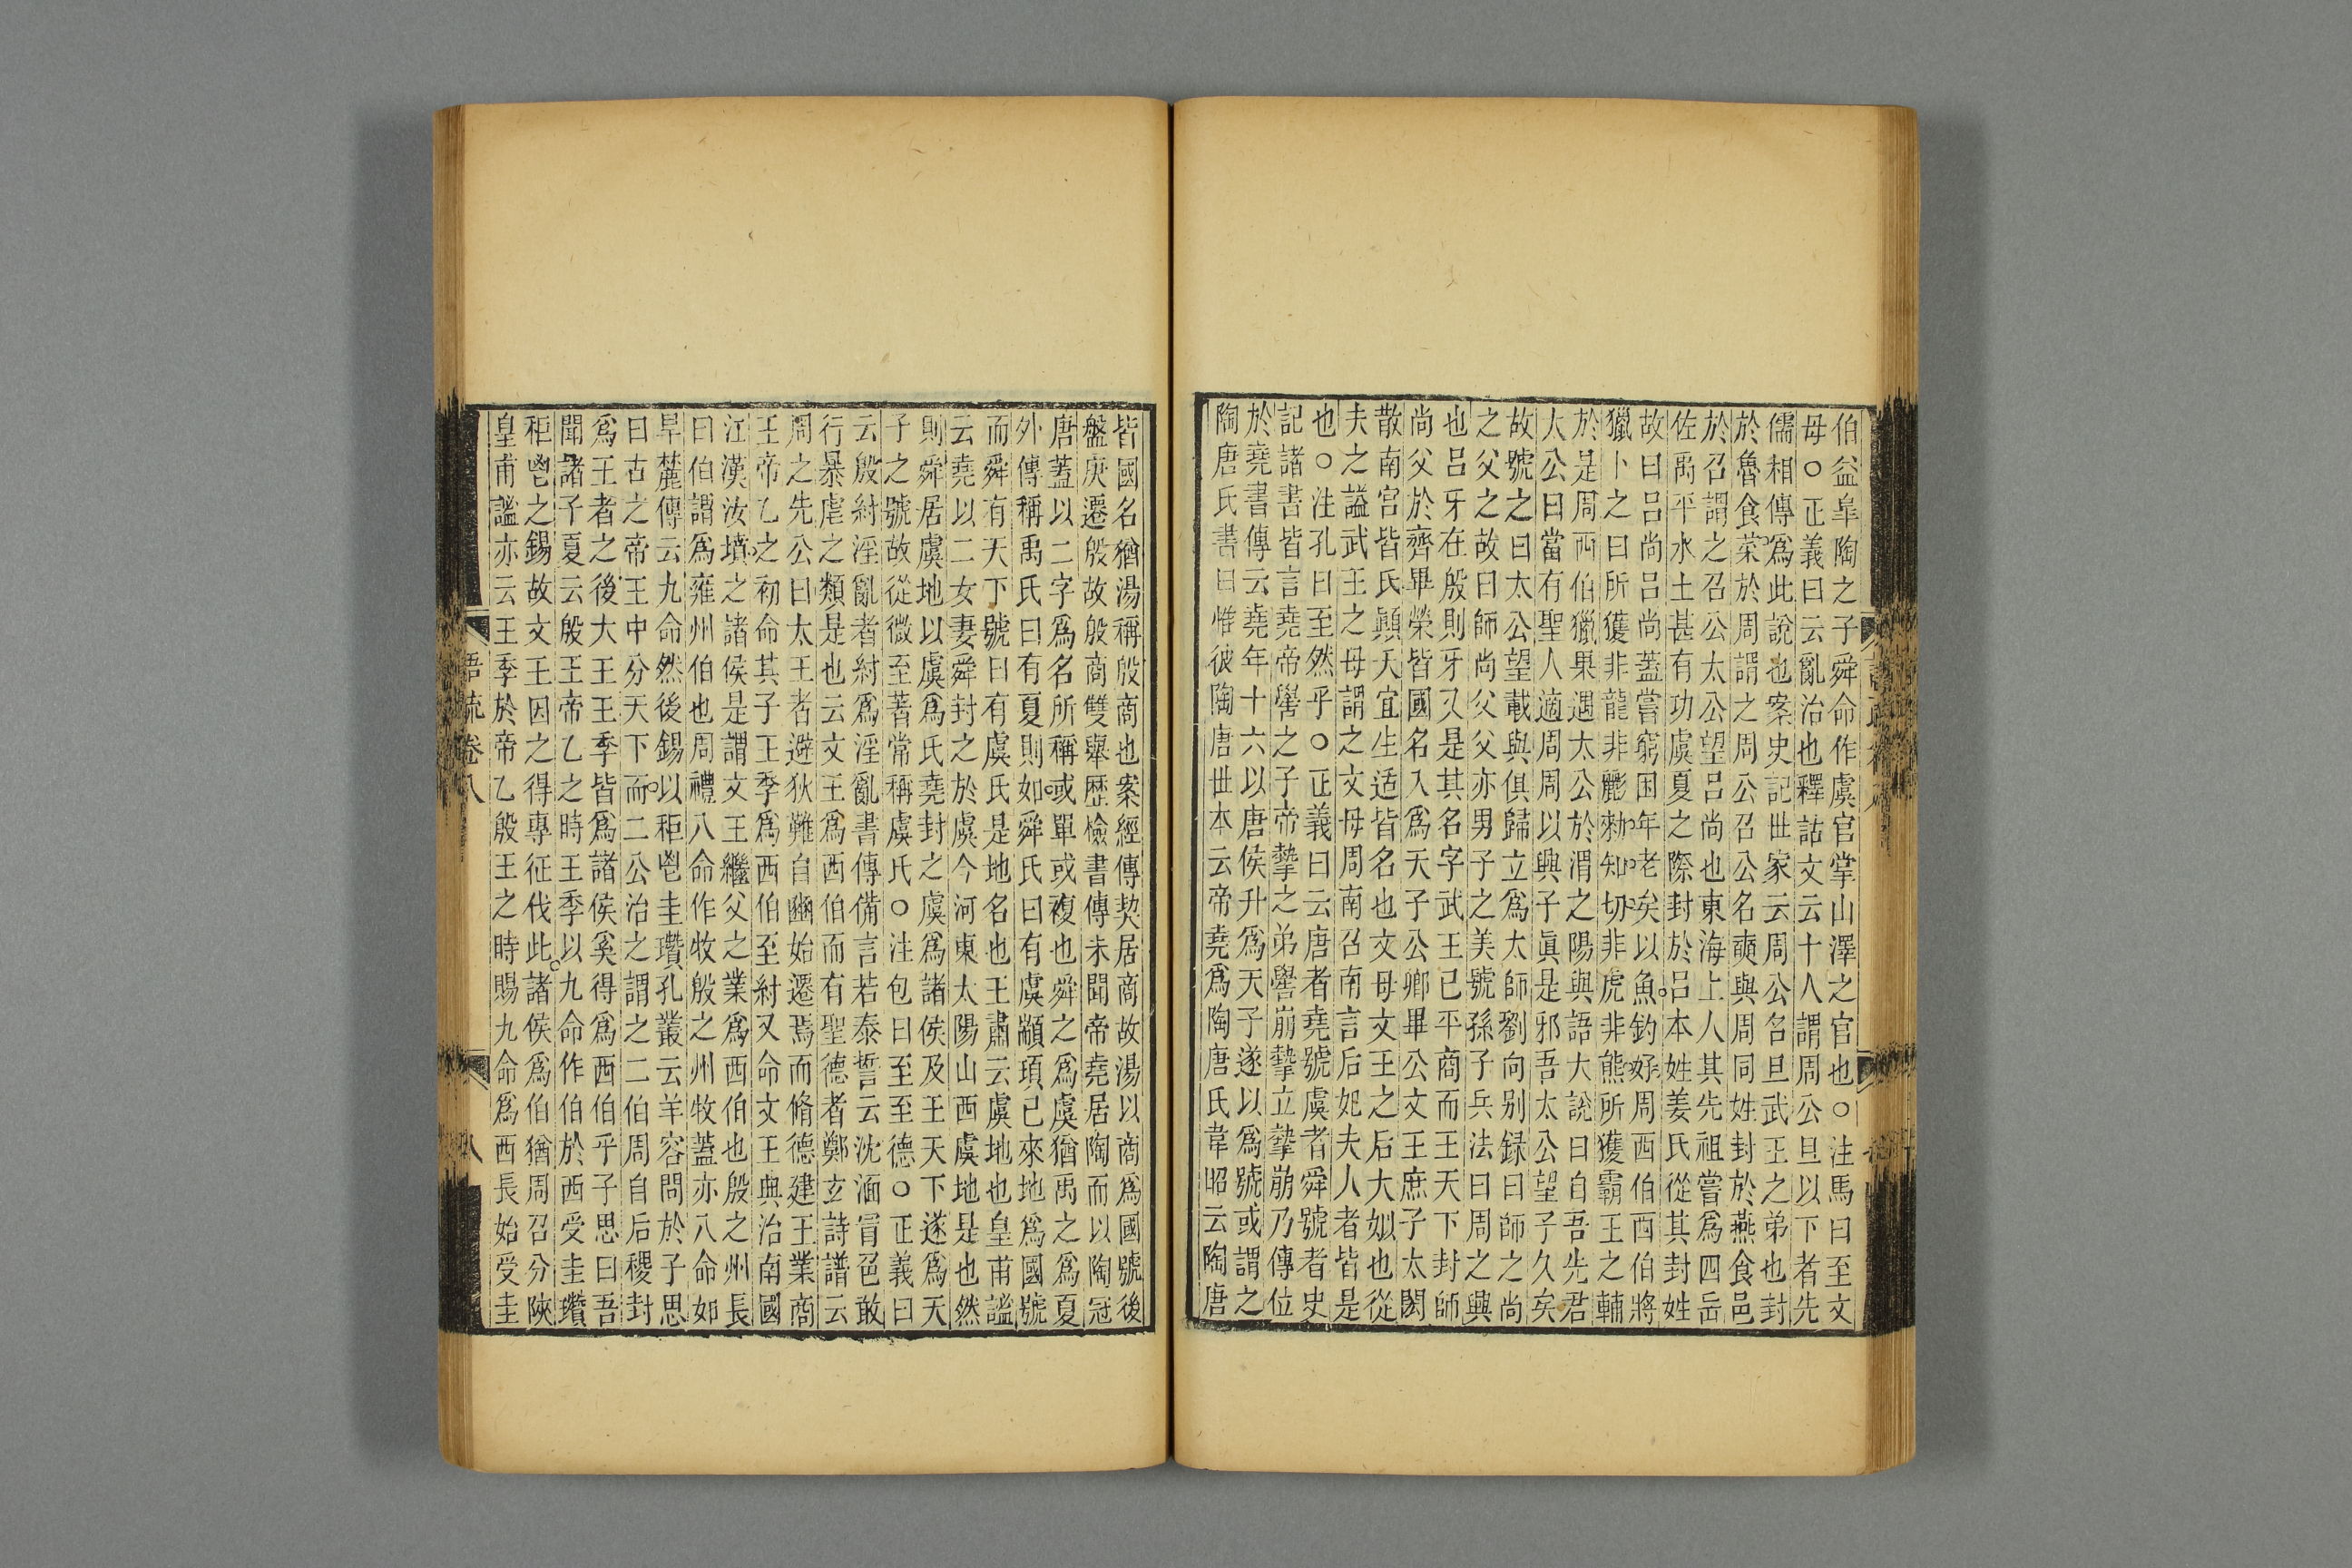 伯益皐陶之子舜命作虞官掌山澤之官也○注馬曰至文
母○正義曰云亂治也釋詁文云十人謂周公旦以下者先
儒相傳爲此說也案史記世家云周公名旦武王之弟也封
於魯食菜於周謂之周公召公名奭與周同姓封於燕食邑
於召謂之召公太公望呂尚也東海上人其先祖嘗爲四岳
佐禹平水土甚有功虞夏之際封於呂本姓姜氏從其封姓
故曰呂尚呂尚蓋嘗窮困年老矣以魚釣好周西伯西伯將
獵卜之曰所獲非龍非彲非虎非熊所獲霸王之輔
於是周西伯獵果遇太公於渭之陽與語大說曰自吾先君
太公曰當有聖人適周周以興子眞是邪吾太公望子久矣
故號之曰太公望載與俱歸立爲太師劉向别録曰師之尚
之父之故曰師尚父父亦男子之美號孫子兵法曰周之興
也呂牙在殷則牙又是其名字武王已平商而王天下封師
尚父於齊畢榮皆國名入爲天子公卿畢公文王庶子太閎
散南宮皆氏顚夭宜生适皆名也文母文王之后大姒也從
夫之謚武王之母謂之文母周南召南言后妃夫人者皆是
也○注孔曰至然乎○正義曰云唐者堯號虞者舜號者史
記諸書皆言堯帝嚳之子帝摯之弟嚳崩摯立摯崩乃傳位
於堯書傳云堯年十六以唐侯升爲天子遂以爲號或謂之
陶唐氏書曰惟彼陶唐世本云帝堯爲陶唐氏韋昭云陶唐
皆國名猶湯稱殷商也案經傳契居商故湯以商爲國號後
盤庚遷殷故殷商雙舉歷檢書傳未聞帝堯居陶而以陶冠
唐蓋以二字爲名所稱或單或複也舜之爲虞猶禹之爲夏
外傳稱禹氏曰有夏則如舜氏曰有虞顓頊已來地爲國號
而舜有天下號曰有虞氏是地名也王肅云虞地也皇甫謐
云堯以二女妻舜封之於虞今河東太陽山西虞地是也然
則舜居虞地以虞爲氏堯封之虞爲諸侯及王天下遂爲天
子之號故從微至著常稱虞氏○注包曰至至德○正義曰
云殷紂淫亂者紂爲淫亂書傳備言若泰誓云沈湎冒色敢
行暴虐之類是也云文王爲西伯而有聖德者鄭玄詩譜云
周之先公曰太王者避狄難自豳始遷焉而脩德建王業商
王帝乙之初命其子王季爲西伯至紂又命文王典治南國
江漢汝墳之諸侯是謂文王繼父之業爲西伯也殷之州長
曰伯謂爲雍州伯也周禮八命作牧殷之州牧蓋亦八命如
旱麓傳云九命然後錫以秬鬯圭瓚孔叢云羊容問於子思
曰古之帝王中分天下而二公治之謂之二伯周自后稷封
爲王者之後大王王季皆爲諸侯奚得爲西伯乎子思曰吾
聞諸子夏云殷王帝乙之時王季以九命作伯於西受圭瓚
秬鬯之錫故文王因之得專征伐此諸侯爲伯猶周召分陝
皇甫謐亦云王季於帝乙殷王之時賜九命爲西長始受圭
語疏卷八
八